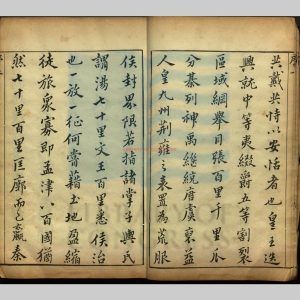 共戴共恃以安恬者也皇王迭
興就中等夷綴爵五等割裂
區域綱舉目張百里千里瓜
分棊列神禹繼統唐虞裒益
人皇九州荆雍之表置為荒服
侯封畧限若指諸掌子輿氏
謂湯七十里文王百里悉侯治
也一放一征何嘗藉土地盈縮
徒旅衆寡即孟津八百國猶
然七十里百里匡廓而已嬴秦